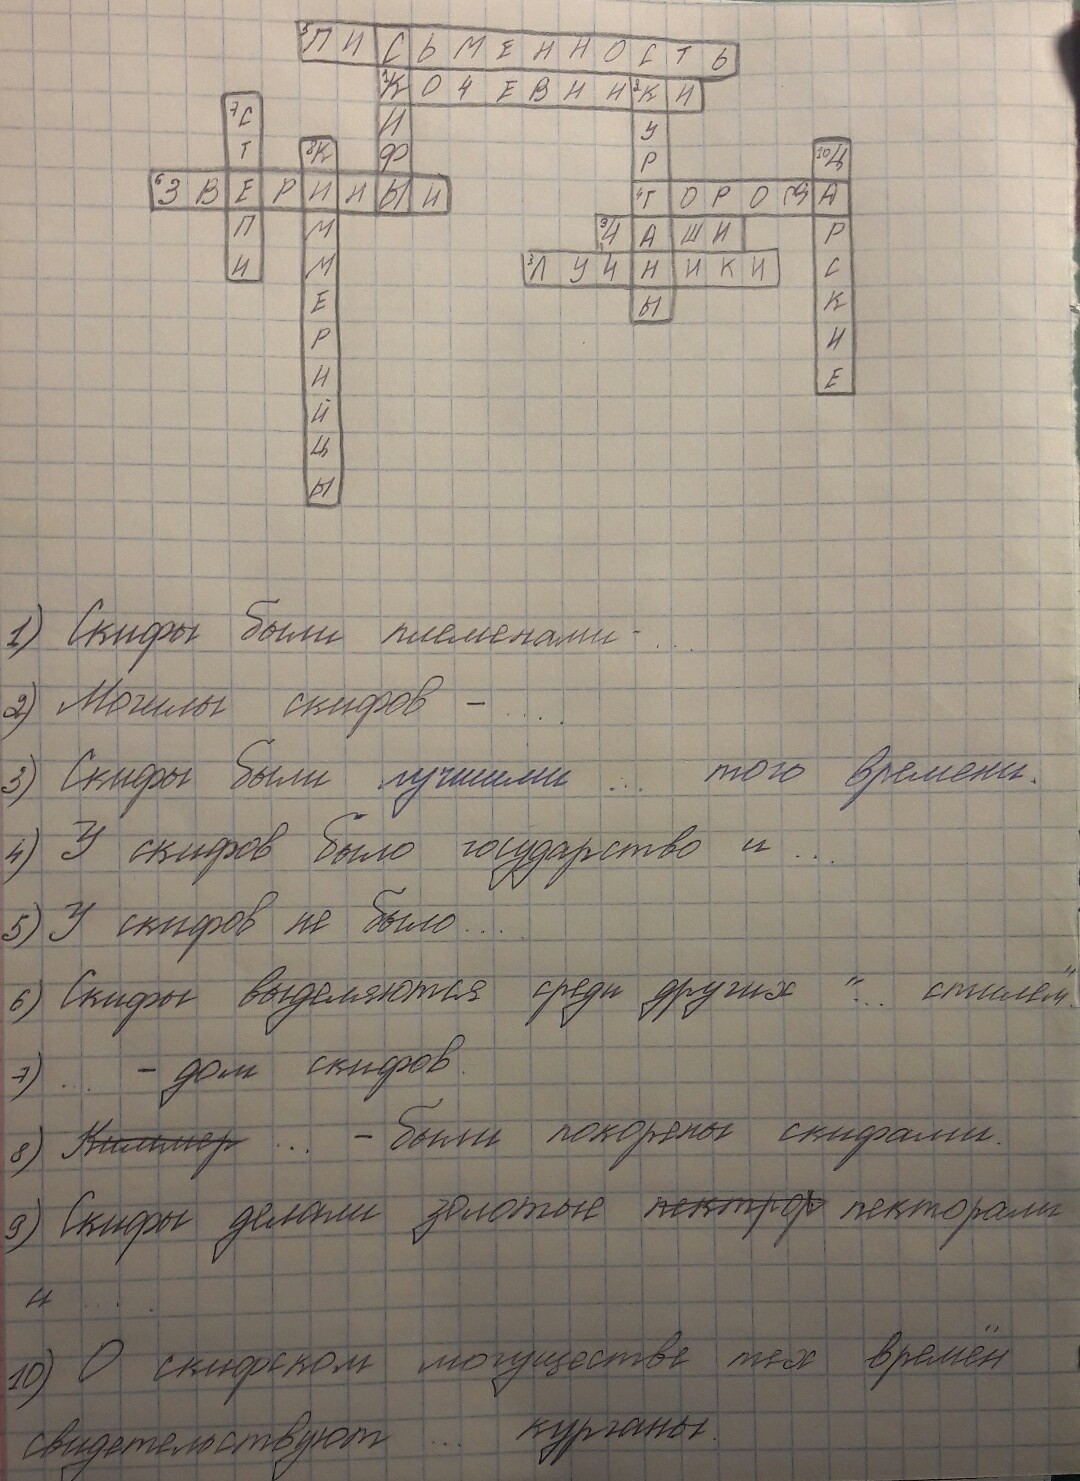 5 ПИСЬМЕННОСТЬ
1 КОЧЕВНИ 2 КИ
7 С И У
Т 8 К Ф Р 10 Ц
6 ЗВЕРИНЫЙ 4 ГОРОДА
П М 9 ЧАШИ Р
И М 3 ЛУЧНИКИ С
Е Ы К
Р И
И Е
Й
Ц
Ы
1) Скифы были племенами - ...
2) Могилы скифов - ....
3) Скифы были лучшими ... того времени.
4) У скифов было государство и ...
5) У скифов не было ...
6) Скифы выделяются среди других "... стилем".
7) ... - дом скифов.
8) Киммер ... - были покорены скифами.
9) Скифы делали золотые пектрор пекторали
и ....
10) О скифском могуществе тех времён
свидетельствуют ... курганы.